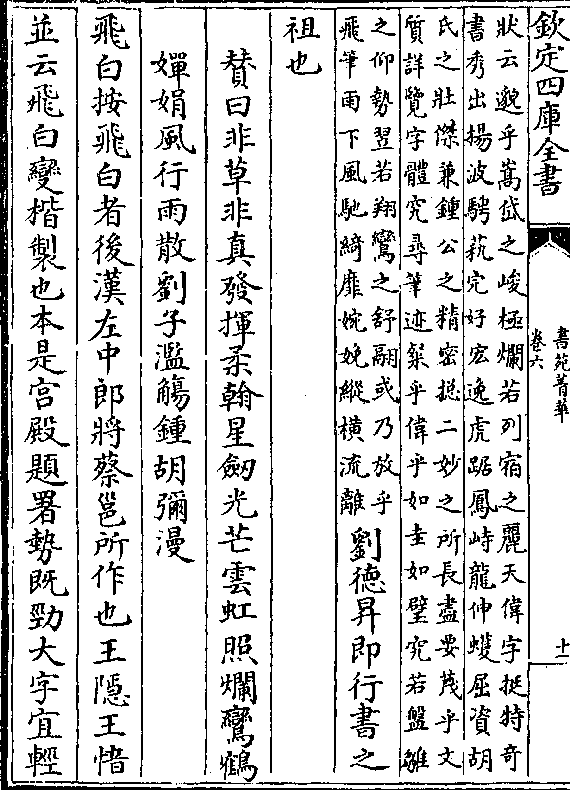 欽定四庫全書
書苑菁華
卷六
十一
狀云邈乎嵩岱之峻極爛若列宿之麗天偉字挺特奇
書秀出揚波騁藝完好宏逸虎踞鳳峙龍伸蠖屈資胡
氏之壯傑兼鍾公之精密摠二妙之所長盡要茂乎文
質詳覽字體究尋筆迹粲乎偉乎如圭如璧究若盤雖
之仰勢翌若翔鸞之舒翮或乃放乎
飛筆雨下風馳綺靡婉娩縱橫流離
劉德昇即行書之
祖也
賛曰非草非真發揮柔翰星劒光芒雲虹照爛鸞鶴
嬋娟風行雨散劉子濫觴鍾胡彌漫
飛白按飛白者後漢左中郎將蔡邕所作也王隱王愔
並云飛白變楷製也本是宫殿題署勢既勁大字宜輕